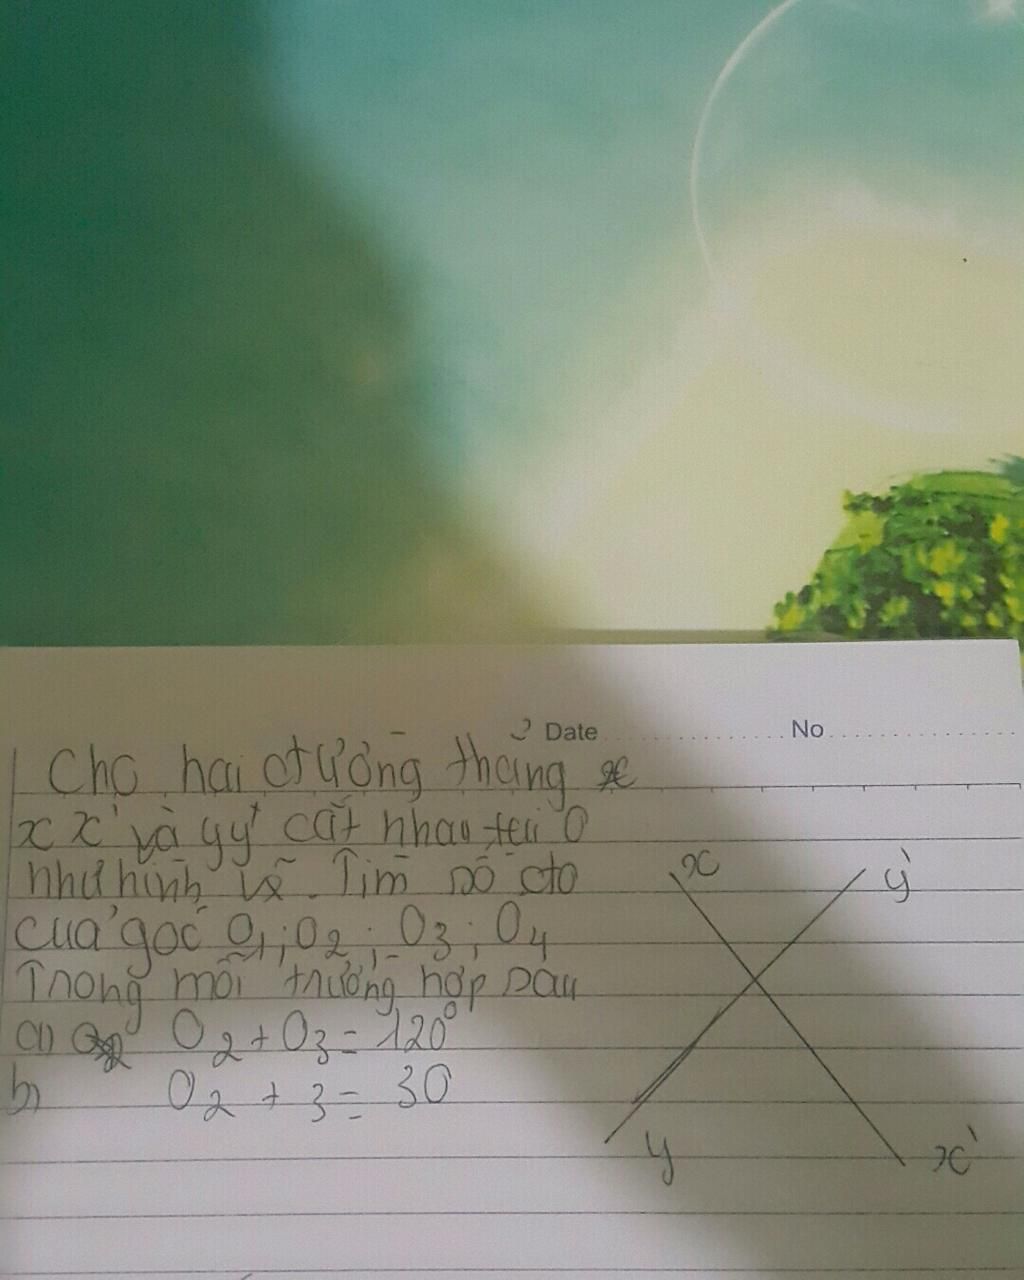 Date No
Cho hai đường thẳng
xx' và yy' cắt nhau tại O
như hình vẽ. Tìm số đo
của góc O1; O2; O3; O4
Trong mỗi trường hợp sau
a) O2 + O3 = 120°
b) O2 + 3 = 30
x y'
y x'